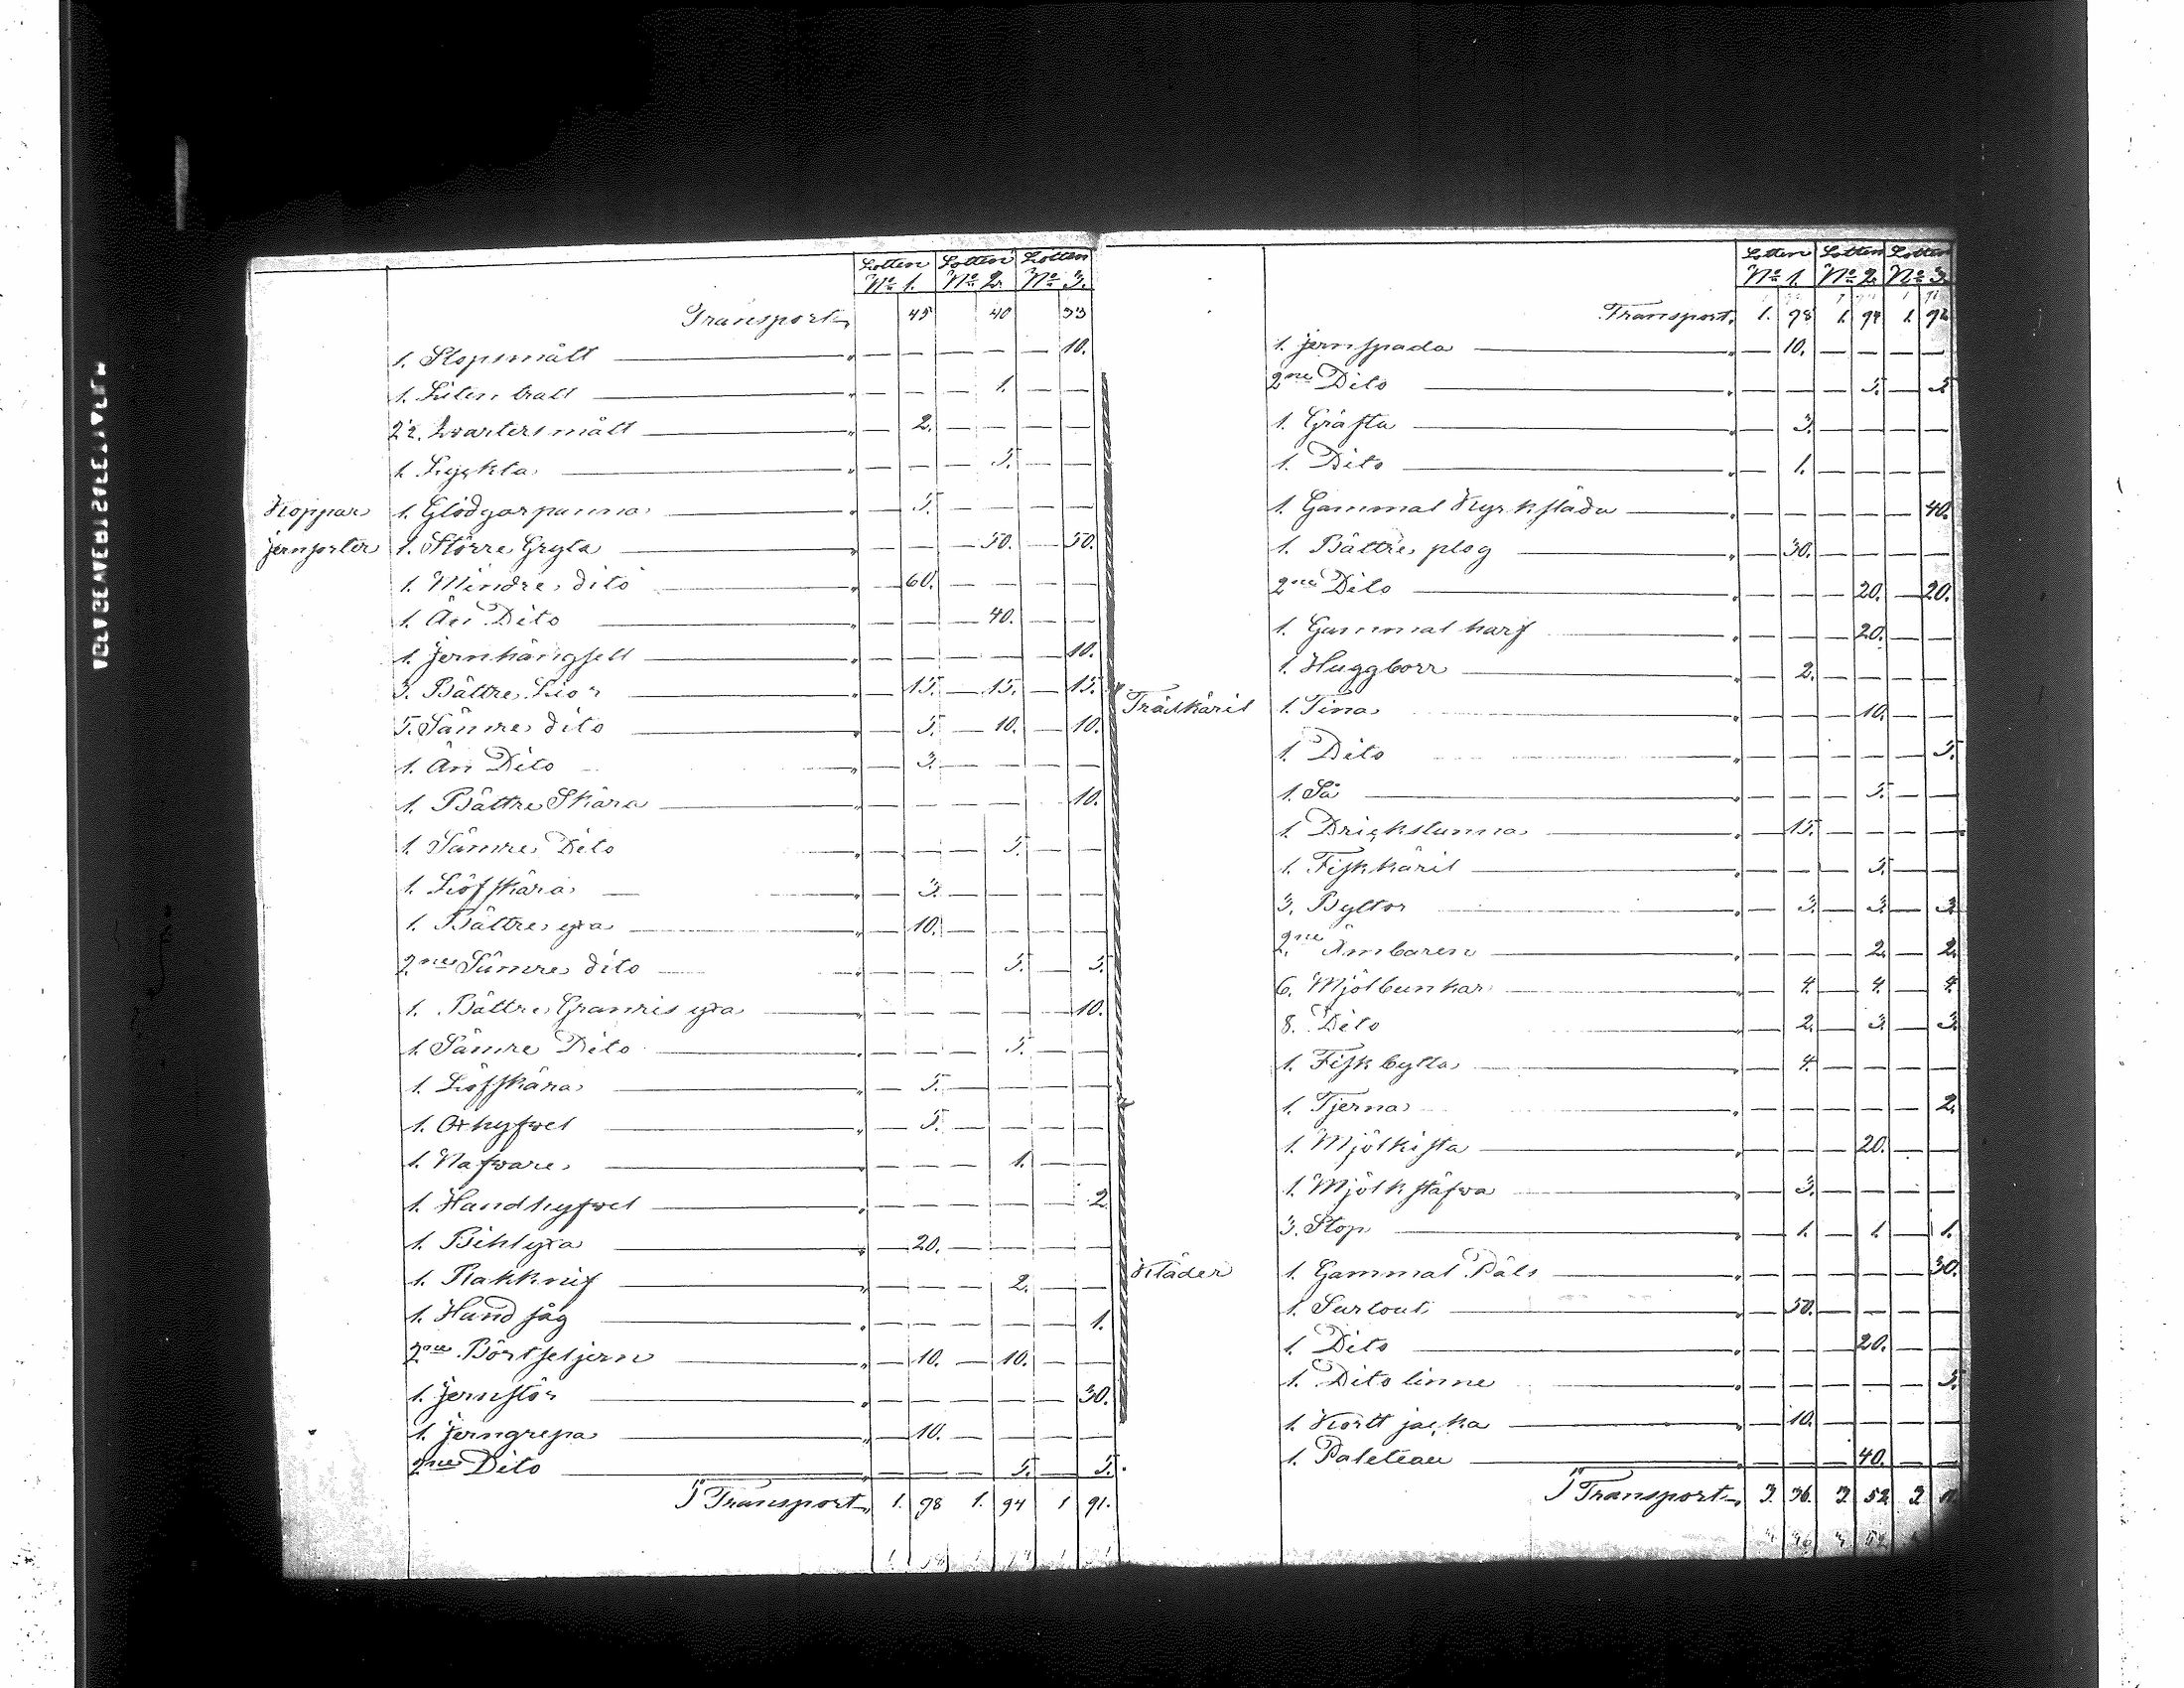 Lotten Lotten Lotten
No 1. No 2. No 3.
Transport, 45 40 33
1. Stopsmått — — — — — 10.
1. Liten tratt — — — 1. — —
2 st. Qvartersmått — 2. — — — —
1. Lygkta — — — 5. — —
Koppar 1. Glödgarpanna — 5. — — — —
Jernsorter 1. Större Gryta — — — 50. — 50.
1. Mindre dito — 60. — — — —
1. Än Dito — — — 40. — —
1. Jernhängsell — — — — — 10.
3. Bättre Lior — 15. — 15. — 15.
5. Sämre dito — 5. — 10. — 10.
1. Än Dito — 3. — — — —
1. Bättre Skära — — — — — 10.
1. Sämre Dito — — — 5. — —
1. Löfskära — 3. — — — —
1. Bättre yxa — 10. — — — —
2ne Sämre dito — — — 5. — 5.
1. Bättre Granris yxa — — — — — 10.
1. Sämre Dito — — — 5. — —
1. Löfskära — 5. — — — —
1. Oxhyfvel — 5. — — — —
1. Nafvare — — — 1. — —
1. Handhyfvel — — — — — 2
1. Bihlyxa — 20. — — — —
1. Rakknif — — — 2. — —
1. Hand såg — — — — — 1.
2ne Börtseljern — 10. — 10. — —
1. Jernstör — — — — — 30.
1. Jerngrepa — 10. — — — —
2ne Dito — — — 5. — 5.
Transport, 1. 98 1. 94 1 91.
Lotten Lotten Lotten
No 1. No 2. No 3.
Transport, 1. 98 1. 94 1.
1. Jernspada — 10. — — — —
2ne Dito — — — 5. — 5
1. Gräfta — 3. — — — —
1. Dito — 1. — — — —
1. Gammal Kyrksläda — — — — — 40.
1. Bättre plog — 30. — — — —
2ne Dito — — — 20. — 20.
1. Gammal harf — — — 20. — —
1. Huggborr — 2. — — — —
Träkäril 1. Tina — — — 10. — —
1. Dito — — — — — 5.
1. Så — — — 5. — —
1. Drickstunna — 15. — — — —
1. Fiskkäril — — — 5. — —
3. Byttor — 3. — 3. — 3
2ne Ämbaren — — — 2. — 2.
6. Mjölbunkar — 4. — 4. — 4.
8. Dito — 2. — 3. — 3.
1. Fiskbytta — 4. — — — —
1. Tjerna — — — — — 2.
1. Mjölkista — — — 20. — —
1. Mjölkstäfva — 3. — — — —
3. Stop — 1. — 1. — 1.
Kläder 1. Gammal Päls — — — — — 30.
1. Surtout — 50. — — — —
1. Dito — — — 20. — —
1. Dito linne — — — — — 5.
1. Kort jacka — 10. — — — —
1. Paleteau — — — 40. — —
Transport, 3. 36. 3. 52